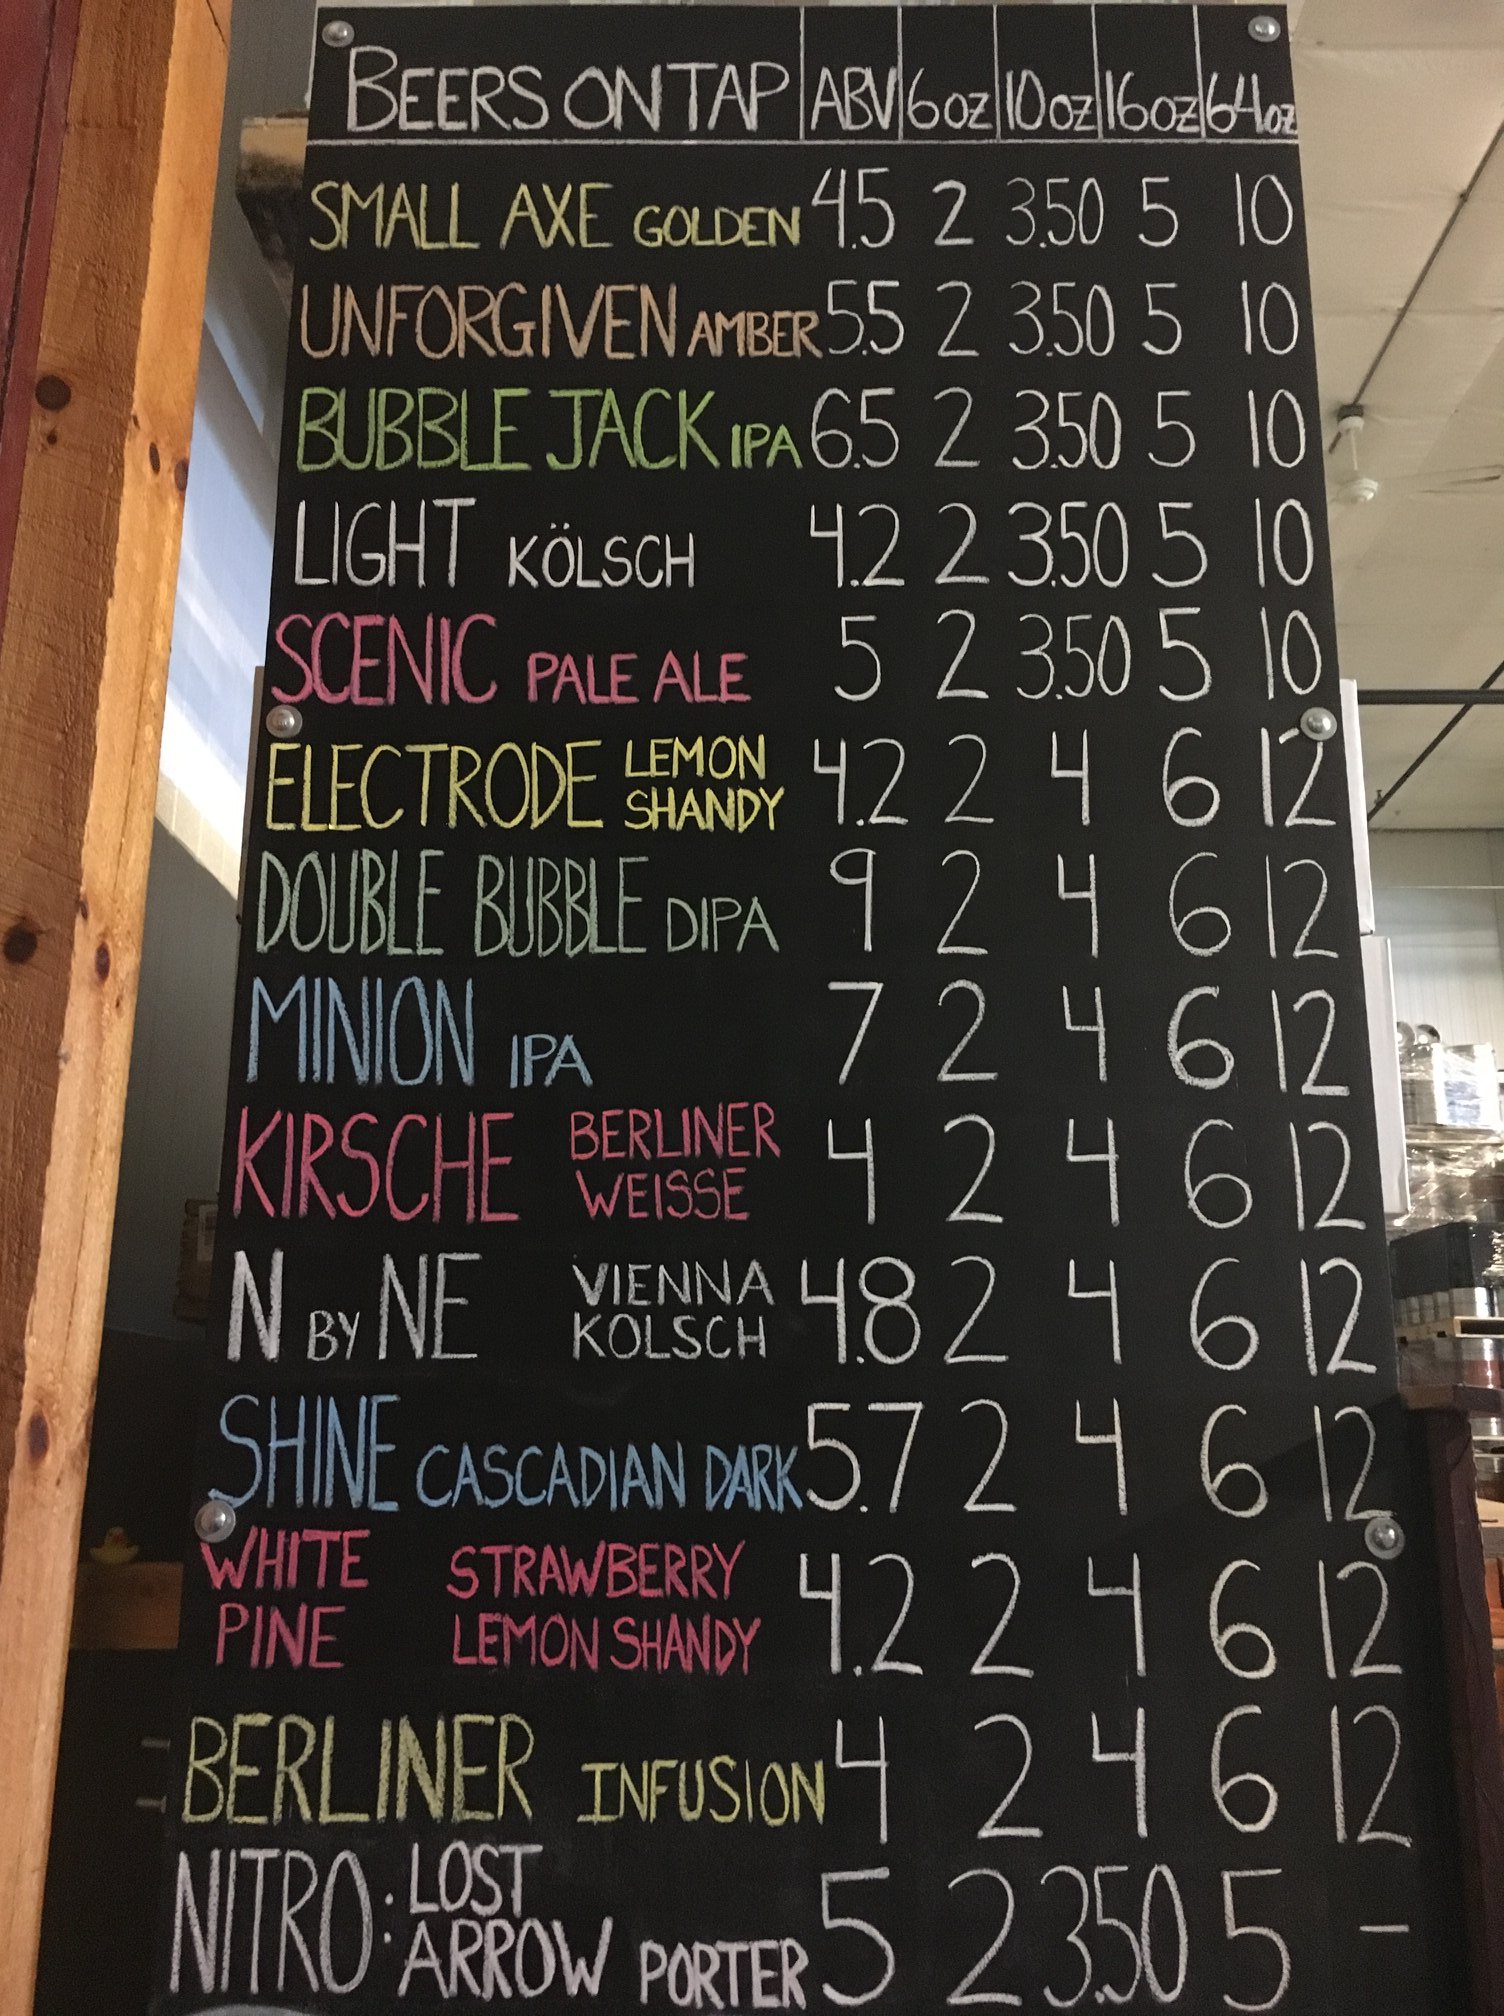 BEERS ON TAP ABV 6oz 10oz 16oz 64oz
SMALL AXE GOLDEN 4.5 2 3.50 5 10
UNFORGIVEN AMBER 5.5 2 3.50 5 10
BUBBLE JACK IPA 6.5 2 3.50 5 10
LIGHT KÖLSCH 4.2 2 3.50 5 10
SCENIC PALE ALE 5 2 3.50 5 10
ELECTRODE LEMON SHANDY 4.2 2 4 6 12
DOUBLE BUBBLE DIPA 9 2 4 6 12
MINION IPA 7 2 4 6 12
KIRSCHE BERLINER WEISSE 4 2 4 6 12
N BY NE VIENNA KOLSCH 4.8 2 4 6 12
SHINE CASCADIAN DARK 5.7 2 4 6 12
WHITE PINE STRAWBERRY LEMON SHANDY 4.2 2 4 6 12
BERLINER INFUSION 4 2 4 6 12
NITRO: LOST ARROW PORTER 5 2 3.50 5 -